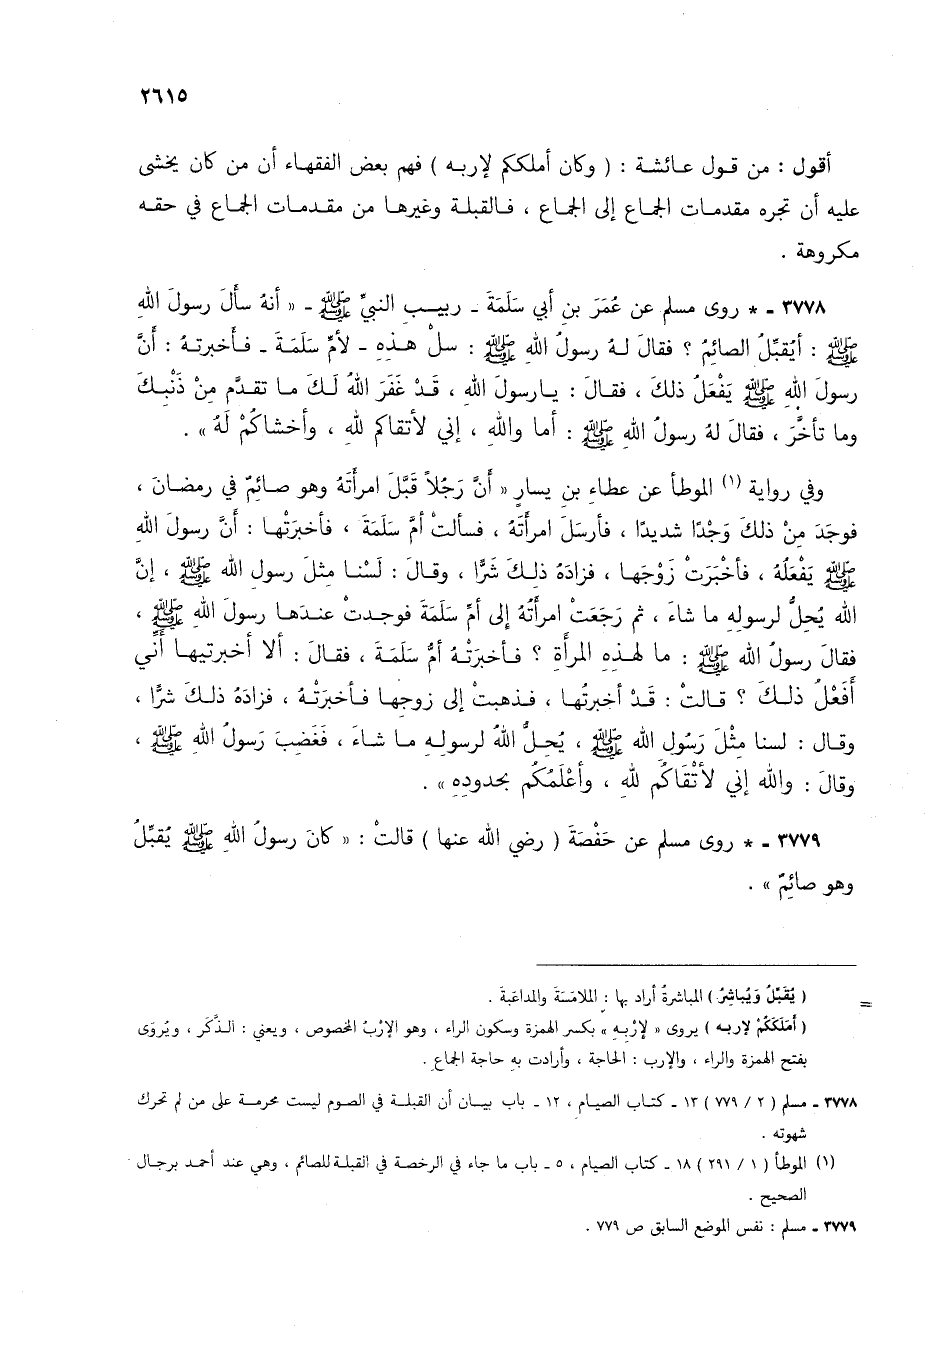 ٢٦١٥
أقول : من قول عائشة : ( وكان أملككم لإربه ) فهم بعض الفقهاء أن من كان يخشى
عليه أن تجره مقدمات الجماع إلى الجماع ، فالقبلة وغيرها من مقدمات الجماع في حقه
مكروهة .
٣٧٧٨ - * روى مسلم عن عُمَرَ بن أبي سَلَمَةَ - ربيب النبيِّ ﷺ - « أنهُ سأَلَ رسولَ الله
ﷺ : أيُقبِّلُ الصائِمُ ؟ فقالَ لهُ رسولُ اللهِ ﷺ : سلْ هذه - لأمِّ سَلَمَةَ - فأخبرتهُ : أنَّ
رسولَ اللهِ ﷺ يَفْعَلُ ذلكَ ، فقالَ : يارسولَ الله ، قَدْ غَفَرَ اللهُ لَكَ ما تقدَّم مِنْ ذَنْبِكَ
وما تأخَّرَ ، فقالَ لهُ رسولُ اللهِ ﷺ : أما واللهِ ، إني لأتقاكم للهِ ، وأخشاكُمْ لَهُ » .
وفي رواية (١) الموطأ عن عطاءِ بن يسارٍ « أنَّ رَجُلاً قَبَّلَ امرأَتَهُ وهو صائِمٌ في رمضانَ ،
فوجَدَ مِنْ ذلكَ وَجْدًا شديدًا ، فأرسَلَ امرأَتَهُ ، فسألتْ أمَّ سَلَمَةَ ، فأخبرَتْها : أنَّ رسولَ اللهِ
ﷺ يَفْعَلُهُ ، فأخْبَرَتْ زَوْجَها ، فزادَهُ ذلِكَ شرًّا ، وقالَ : لَسْنا مثلَ رسولِ الله ﷺ ، إنَّ
الله يُحِلُّ لرسولِهِ ما شاءَ ، ثم رَجَعَتْ امرأتُهُ إلى أمِّ سَلَمَةَ فوجدتْ عندَها رسولَ اللهِ ﷺ ،
فقالَ رسولُ اللهِ ﷺ : ما لهذِهِ المرأَةِ ؟ فأخبرَتْهُ أمُّ سَلَمَةَ ، فقالَ : ألا أخبرتِيها أنِّي
أفَعْلُ ذلكَ ؟ قالتْ : قَدْ أخبرتُها ، فذهبتْ إلى زوجِها فأخبَرَتْهُ ، فزادَهُ ذلكَ شرًّا ،
وقال : لسنا مثْلَ رَسُولِ اللهِ ﷺ ، يُحِلُّ اللهُ لرسولِهِ ما شاءَ ، فَغَضِبَ رَسولُ اللهِ ﷺ ،
وقالَ : واللهِ إني لأتْقَاكُم للهِ ، وأعْلَمُكُم بحدودِهِ » .
٣٧٧٩ - * روى مسلم عن حَفْصَةَ ( رضي الله عنها ) قالتْ : « كانَ رسولُ اللهِ ﷺ يُقبِّلُ
وهو صائِمٌ » .
= ( يُقَبِّلُ وَيُباشِرُ ) المباشرةُ أراد بها : المُلامَسَةَ والمداعَبَة .
( أَمَلَكَكُمْ لإربه ) يروى « لإرْبِهِ » بكسر الهمزة وسكون الراء ، وهو الإرْبُ المخصوص ، ويعني : الذَّكَر ، ويُروَى
بفتح الهمزة والراء ، والإرب : الحاجة ، وأرادت به حاجة الجماع .
٣٧٧٨ - مسلم ( ٢ / ٧٧٩ ) ١٣ - كتاب الصيام ، ١٢ - باب بيان أن القبلة في الصوم ليست محرمة على من لم تحرك
شهوته .
(١) الموطأ ( ١ / ٢٩١ ) ١٨ - كتاب الصيام ، ٥ - باب ما جاء في الرخصة في القبلة للصائم ، وهي عند أحمد برجال
الصحيح .
٣٧٧٩ - مسلم : نفس الموضع السابق ص ٧٧٩ .